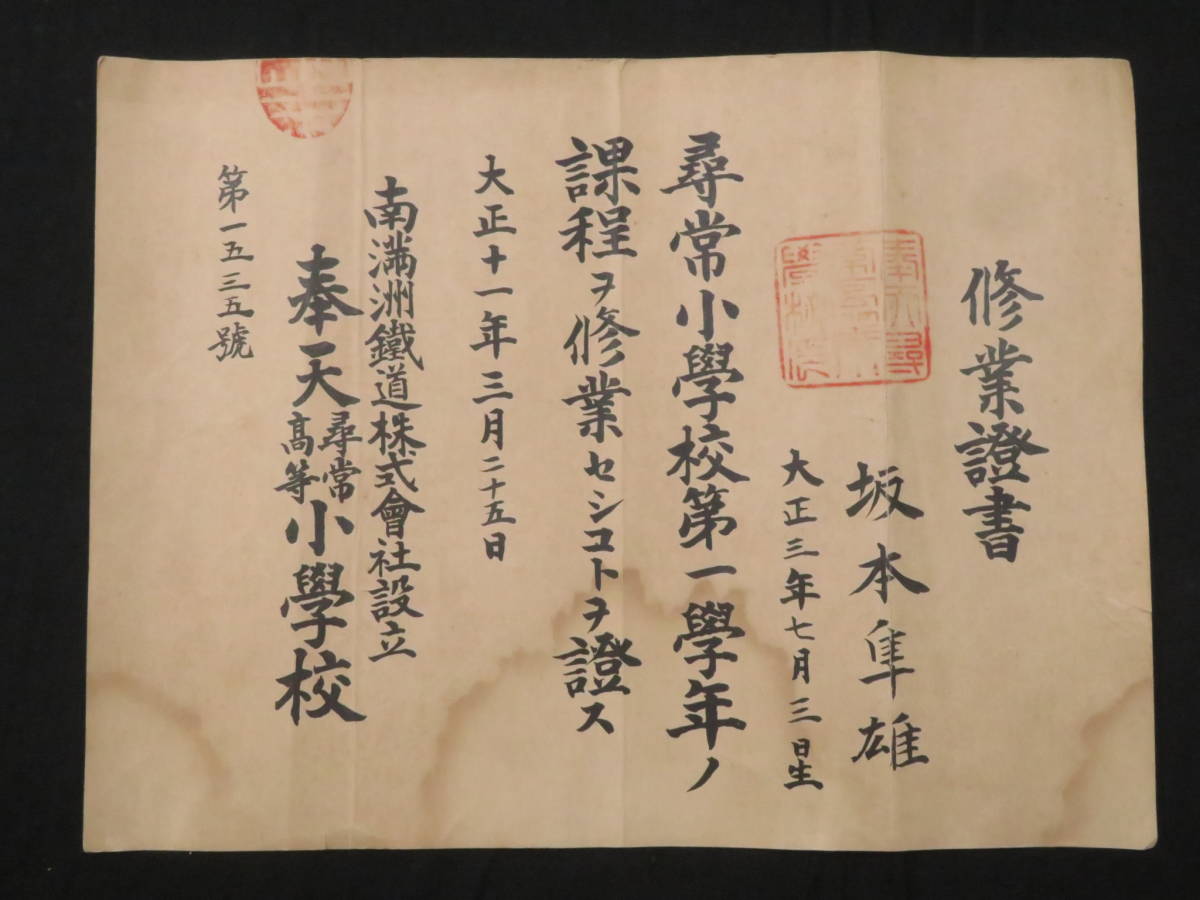 修業證書
坂本隼雄
大正三年七月三日生
尋常小學校第一學年ノ
課程ヲ修業セシコトヲ證ス
大正十一年三月二十五日
南滿洲鐵道株式會社設立
奉天尋常高等小學校
第一五三五號